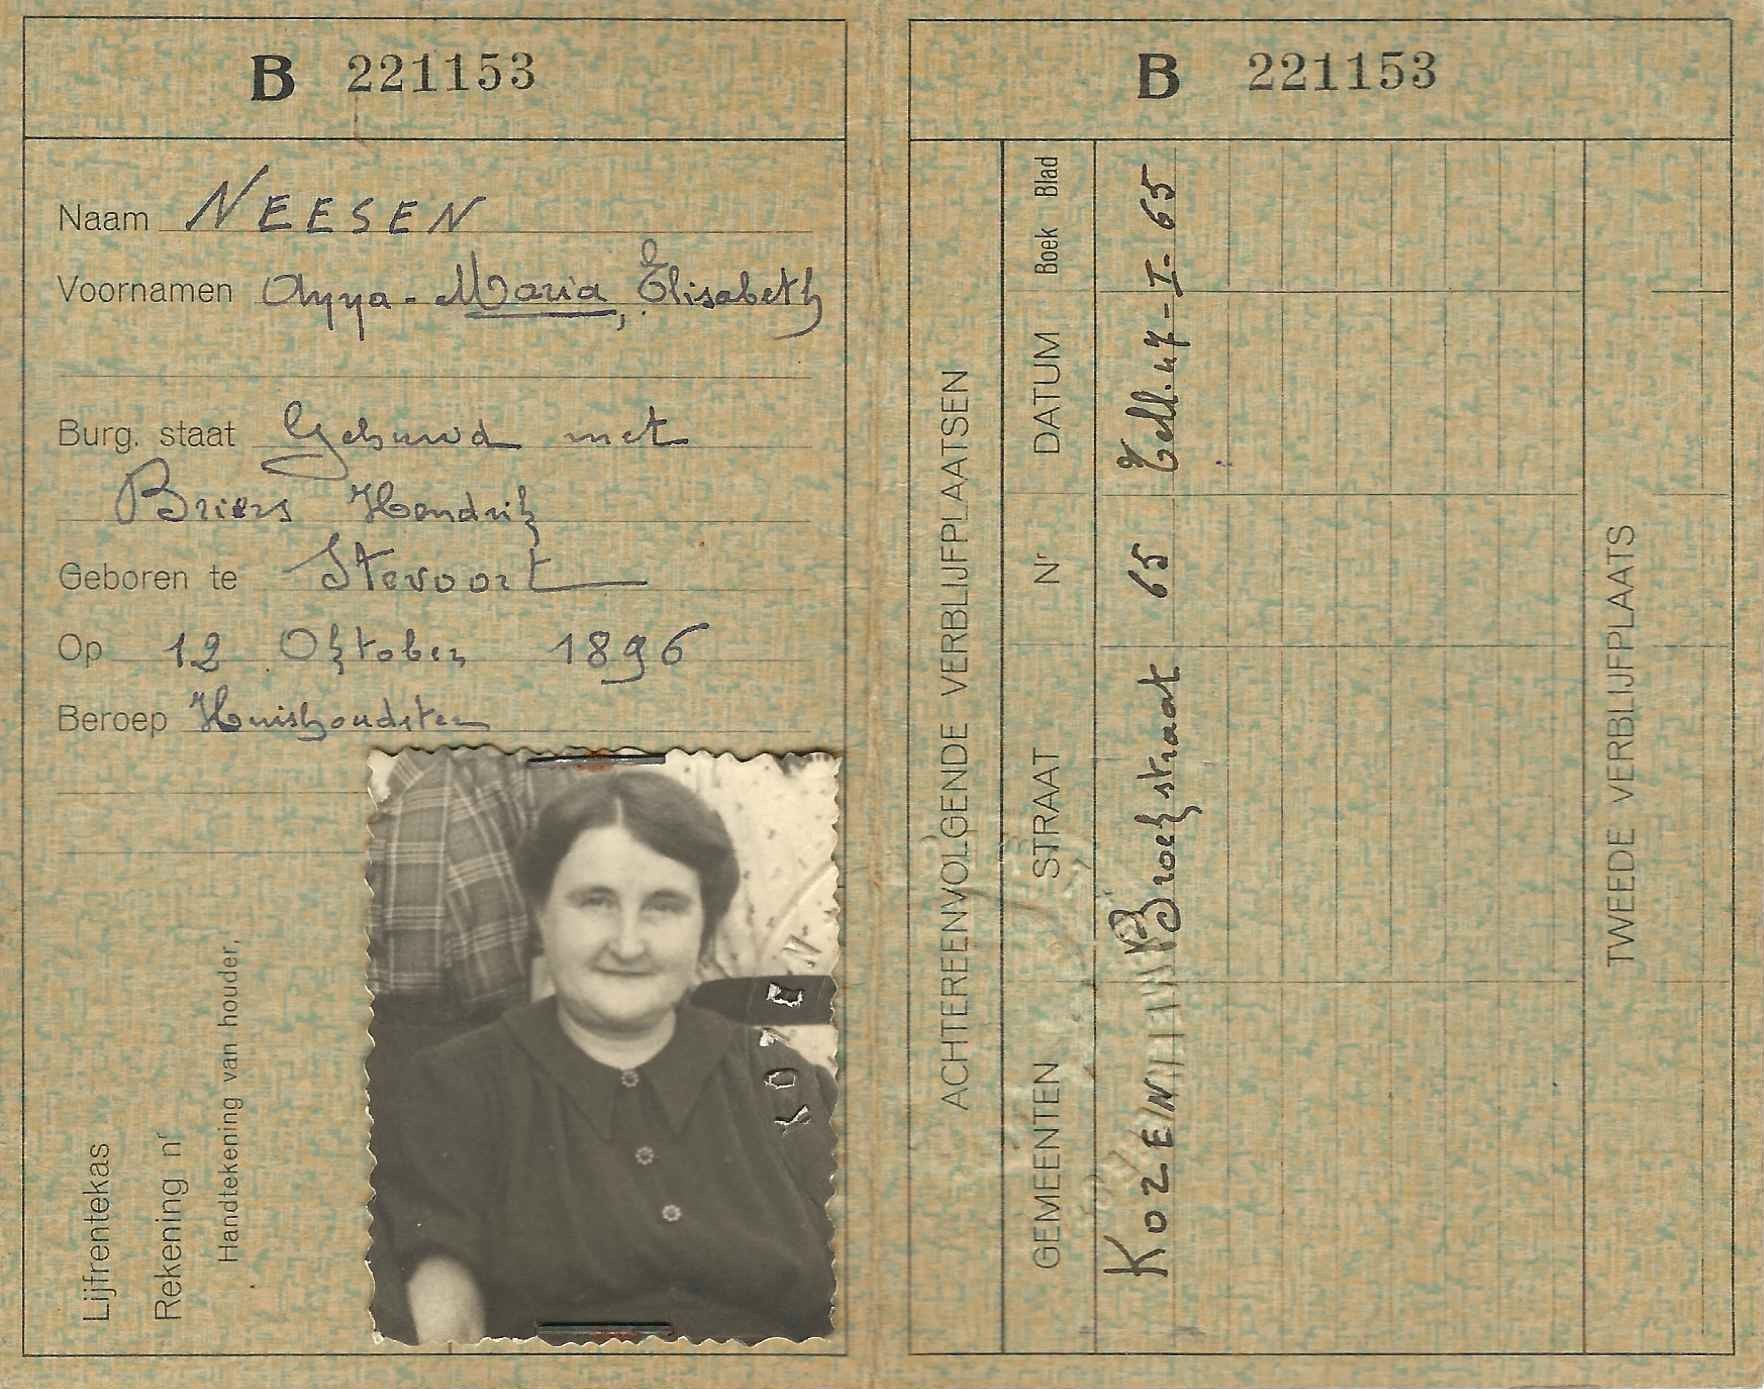 B 221153
Naam NEESEN
Voornamen Anna - Maria, Elisabeth
Burg. staat Gehuwd met
Briers Hendrik
Geboren te Stevoort
Op 12 Oktober 1896
Beroep Huishoudster
Lijfrentekas
Rekening nr
Handtekening van houder,
KOZEN
B 221153
ACHTEREENVOLGENDE VERBLIJFPLAATSEN
GEMEENTEN STRAAT Nr DATUM Boek Blad
KOZEN Broekstraat 65 Tell. 47 - I - 65
TWEEDE VERBLIJFPLAATS